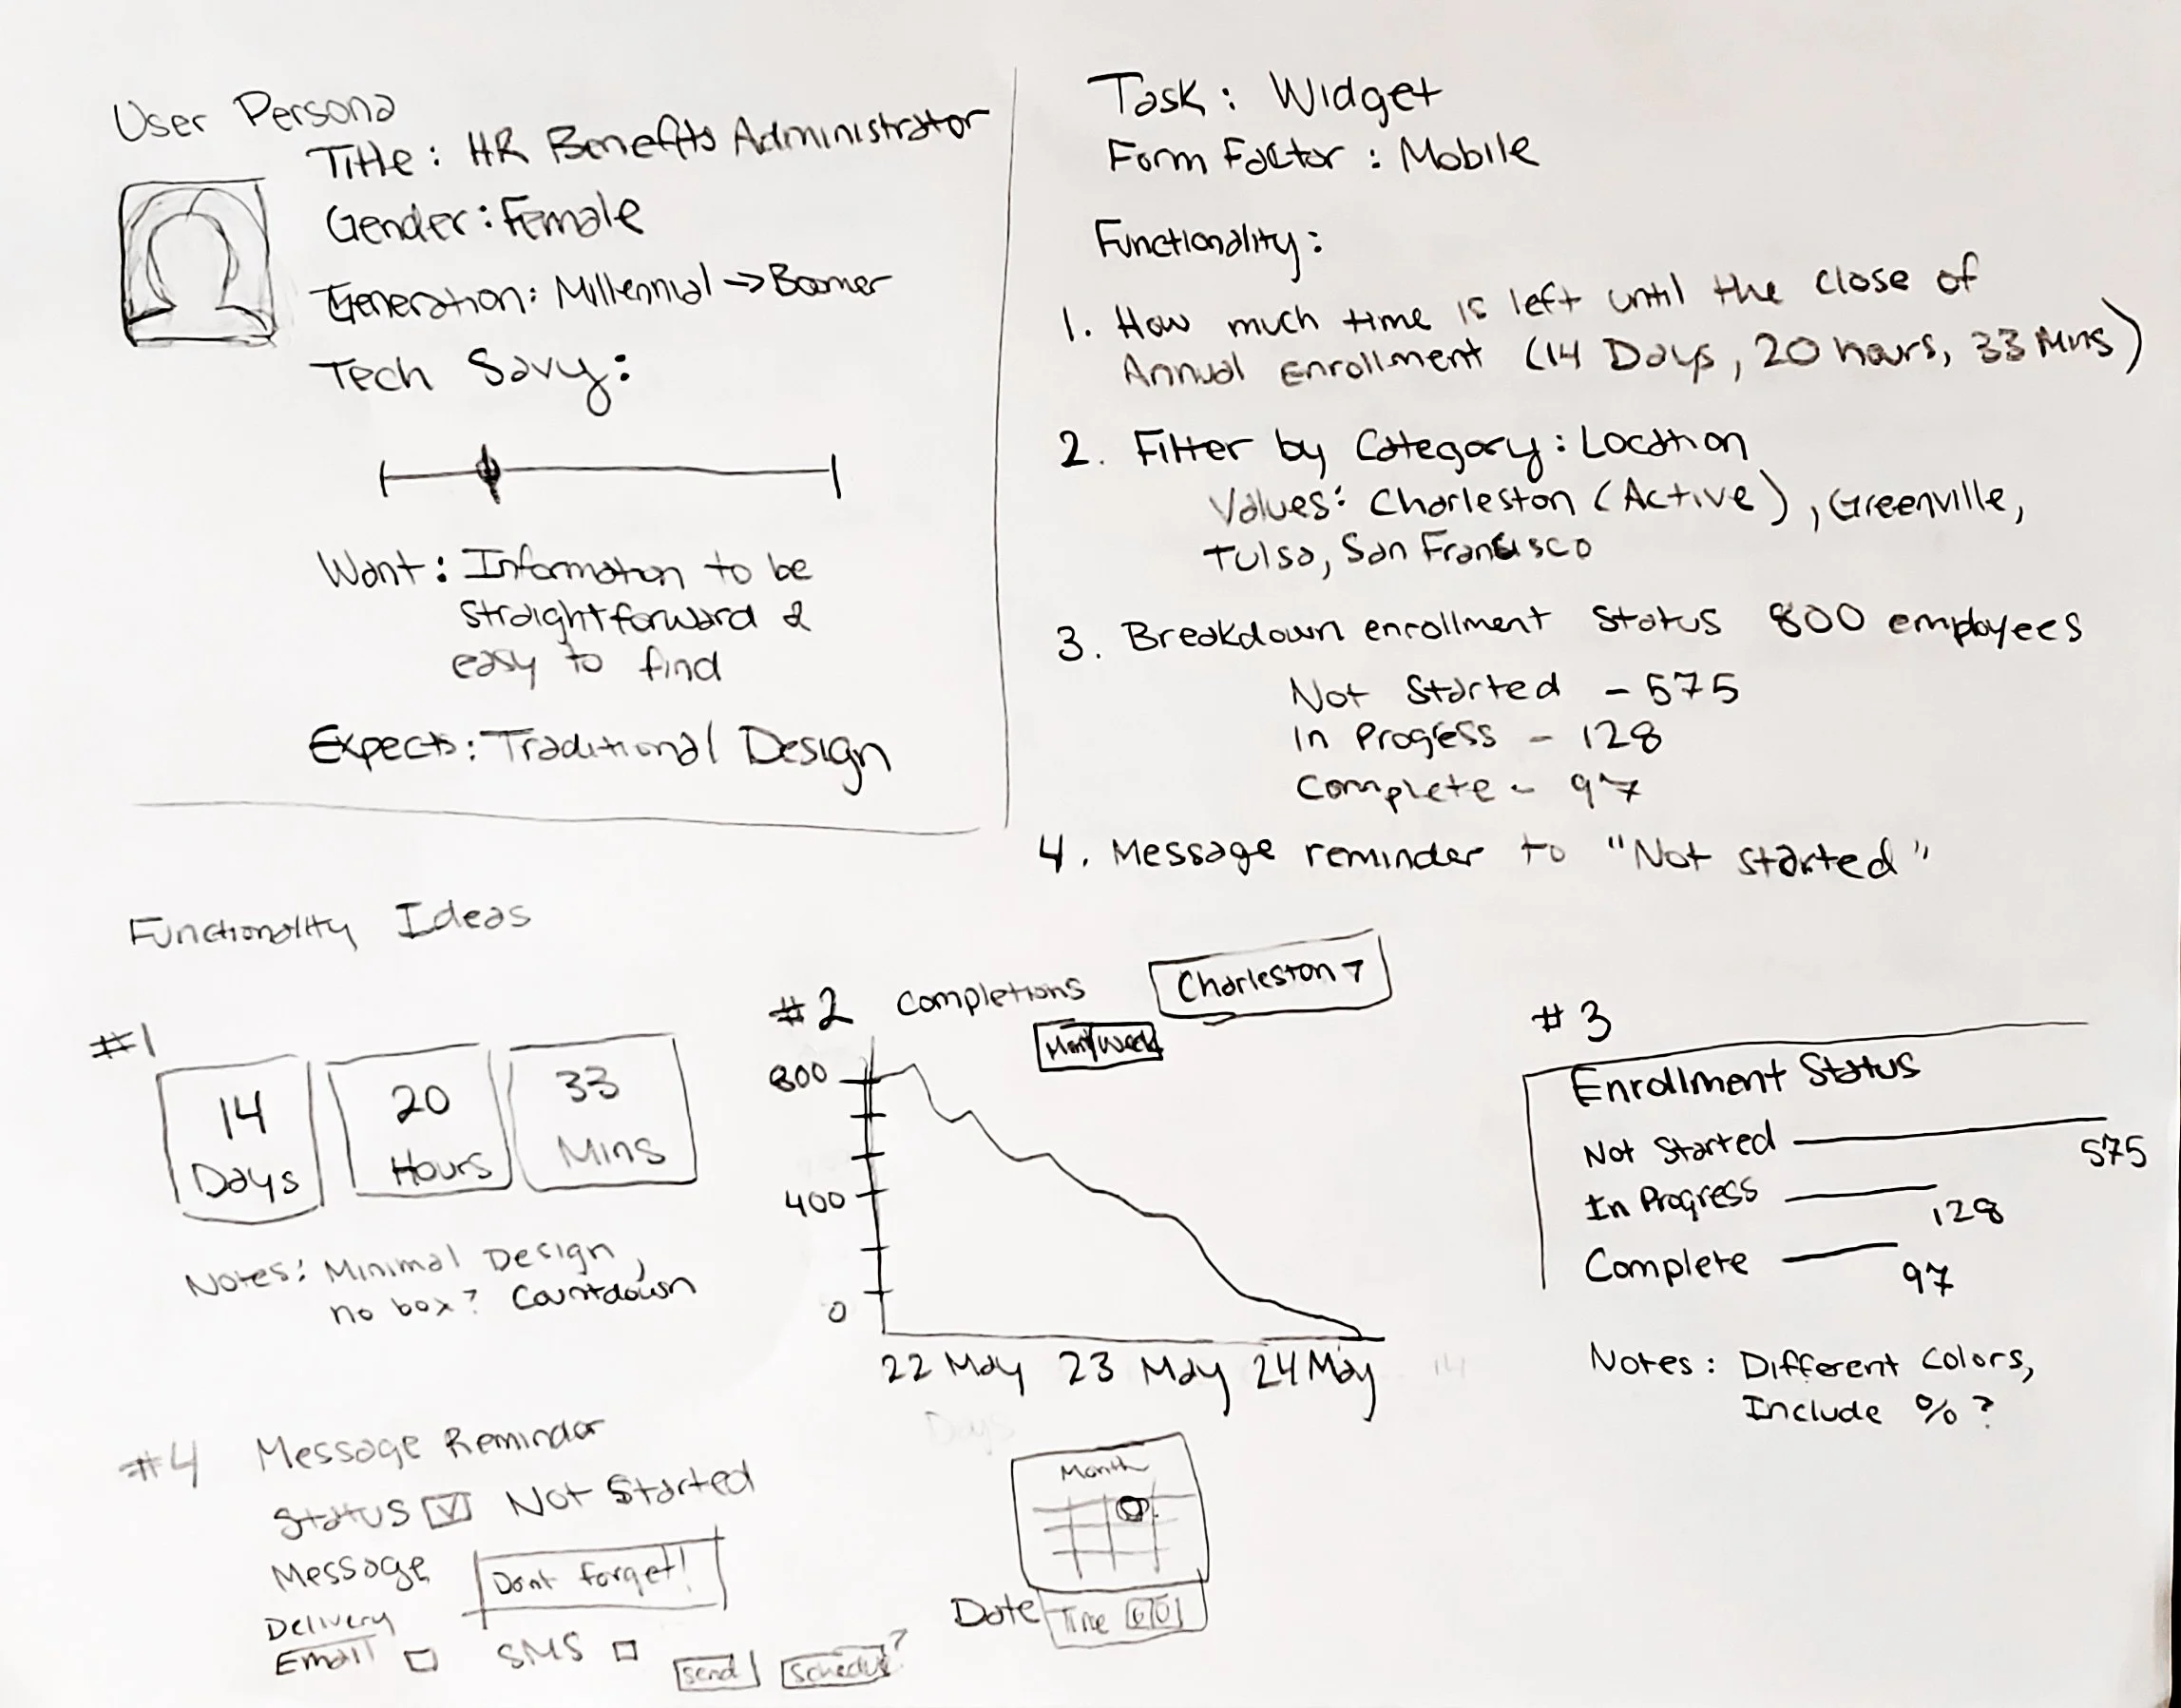 User Persona
Title: HR Benefits Administrator
Gender: Female
Generation: Millennial → Boomer
Tech Savy:
Want: Information to be
straightforward &
easy to find
Expects: Traditional Design
Task: Widget
Form Factor: Mobile
Functionality:
1. How much time is left until the close of
Annual Enrollment (14 Days, 20 hours, 33 Mins)
2. Filter by Category: Location
Values: Charleston (Active), Greenville,
Tulsa, San Francisco
3. Breakdown enrollment status 800 employees
Not Started - 575
In Progess - 128
Complete - 97
4. Message reminder to "Not started"
Functionality Ideas
#1
14
Days
20
Hours
33
Mins
Notes: Minimal Design,
no box? Countdown
#2 Completions
Charleston
Week
800
400
0
22 May 23 May 24 May
14
Days
#3
Enrollment Status
Not Started 575
In Progress 128
Complete 97
Notes: Different Colors,
Include % ?
#4 Message Reminder
Status Not Started
Message Dont forget!
Delivery
Email SMS
Send Schedule?
Month
Date Time